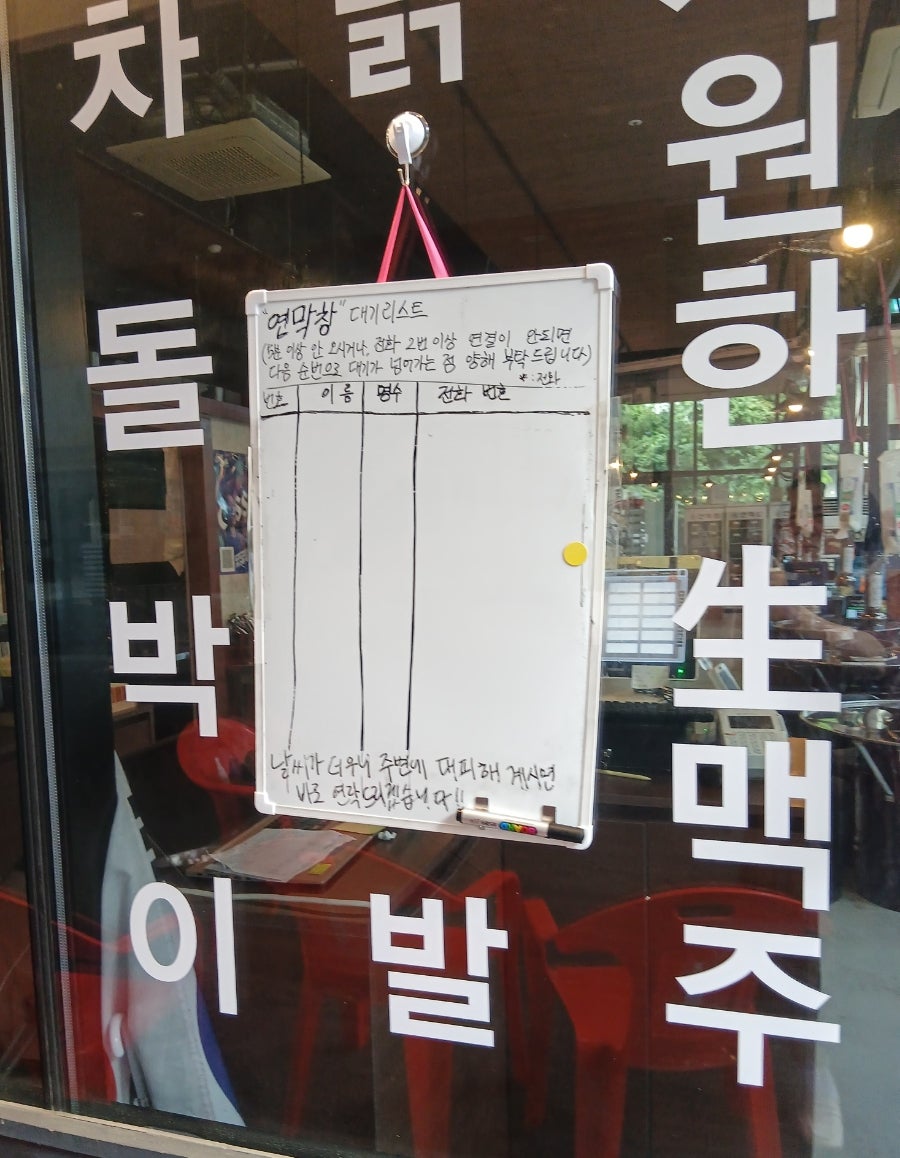 "연막창" 대기리스트
(5분 이상 안 오시거나, 전화 2번 이상 연결이 안되면
다음 순번으로 대기가 넘어가는 점 양해 부탁 드립니다)
*: 전화
번호 이름 명수 전화 번호
날씨가 더우니 주변에 대피해 계시면
바로 연락드리겠습니다!!
차돌박이
닭발
원한生맥주